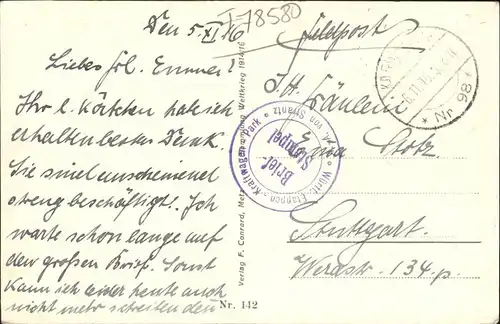 Den 5. XI. 16
I-78580
Feldpost
Liebes Frl. Emma!
Ihr l. Kärtchen habe ich
erhalten besten Dank.
Sie sind anscheinend
streng beschäftigt! Ich
warte schon lange auf
den großen Brief. Sonst
kann ich leider heute auch
nicht mehr schreiben den
Nr. 142
Verlag F. Conrard, Metz
Weltkrieg 1914/16
Württ. Etappen-Kraftwagen-Park
von Strantz
Brief-
Stempel
Nr. 98
Fräulein
Emma Stotz
Stuttgart.
Werastr. 134 p.